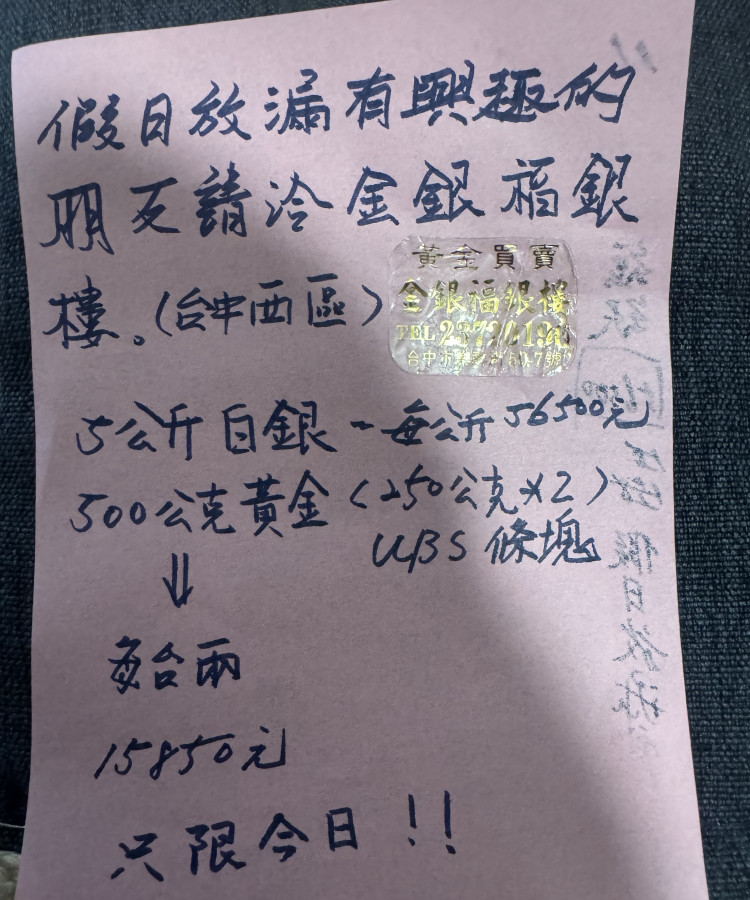 假日放漏有興趣的
朋友請洽金銀福銀
樓。(台中西區)
黃金買賣
金銀福銀樓
TEL
台中市
5公斤白銀-每公斤56500元
500公克黃金(250公克×2)
UBS條塊
⇓
每台兩
15850元
只限今日!!